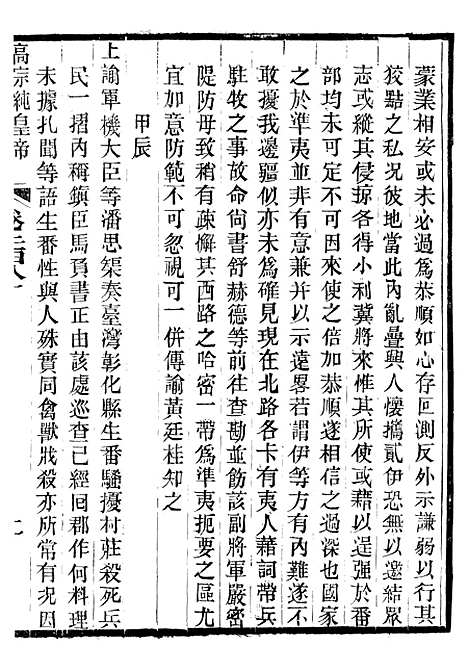 蒙業相安或未必過為恭順如心存叵測反外示謙弱以行其
狡黠之私況彼地當此內亂疊興人懷攜貳伊恐無以邀結眾
志或縱其侵掠各得小利冀將來惟其所使或藉以逞強於番
部均未可定不可因來使之倍加恭順遂相信之過深也國家
之於準夷並非有意兼并以示遠畧若謂伊等方有內難遂不
敢擾我邊疆似亦未為確見現在北路各卡有夷人藉詞帶兵
駐牧之事故命尙書舒赫德等前往查勘並飭該副將軍嚴密
隄防毋致稍有疎懈其西路之哈密一帶為準夷扼要之區尤
宜加意防範不可忽視可一併傳諭黃廷桂知之
甲辰
上諭軍機大臣等潘思榘奏臺灣彰化縣生番騷擾村莊殺死兵
民一摺內稱鎮臣馬負書正由該處巡查已經囘郡作何料理
未據扎聞等語生番性與人殊實同禽獸戕殺亦所常有況因
高宗純皇帝